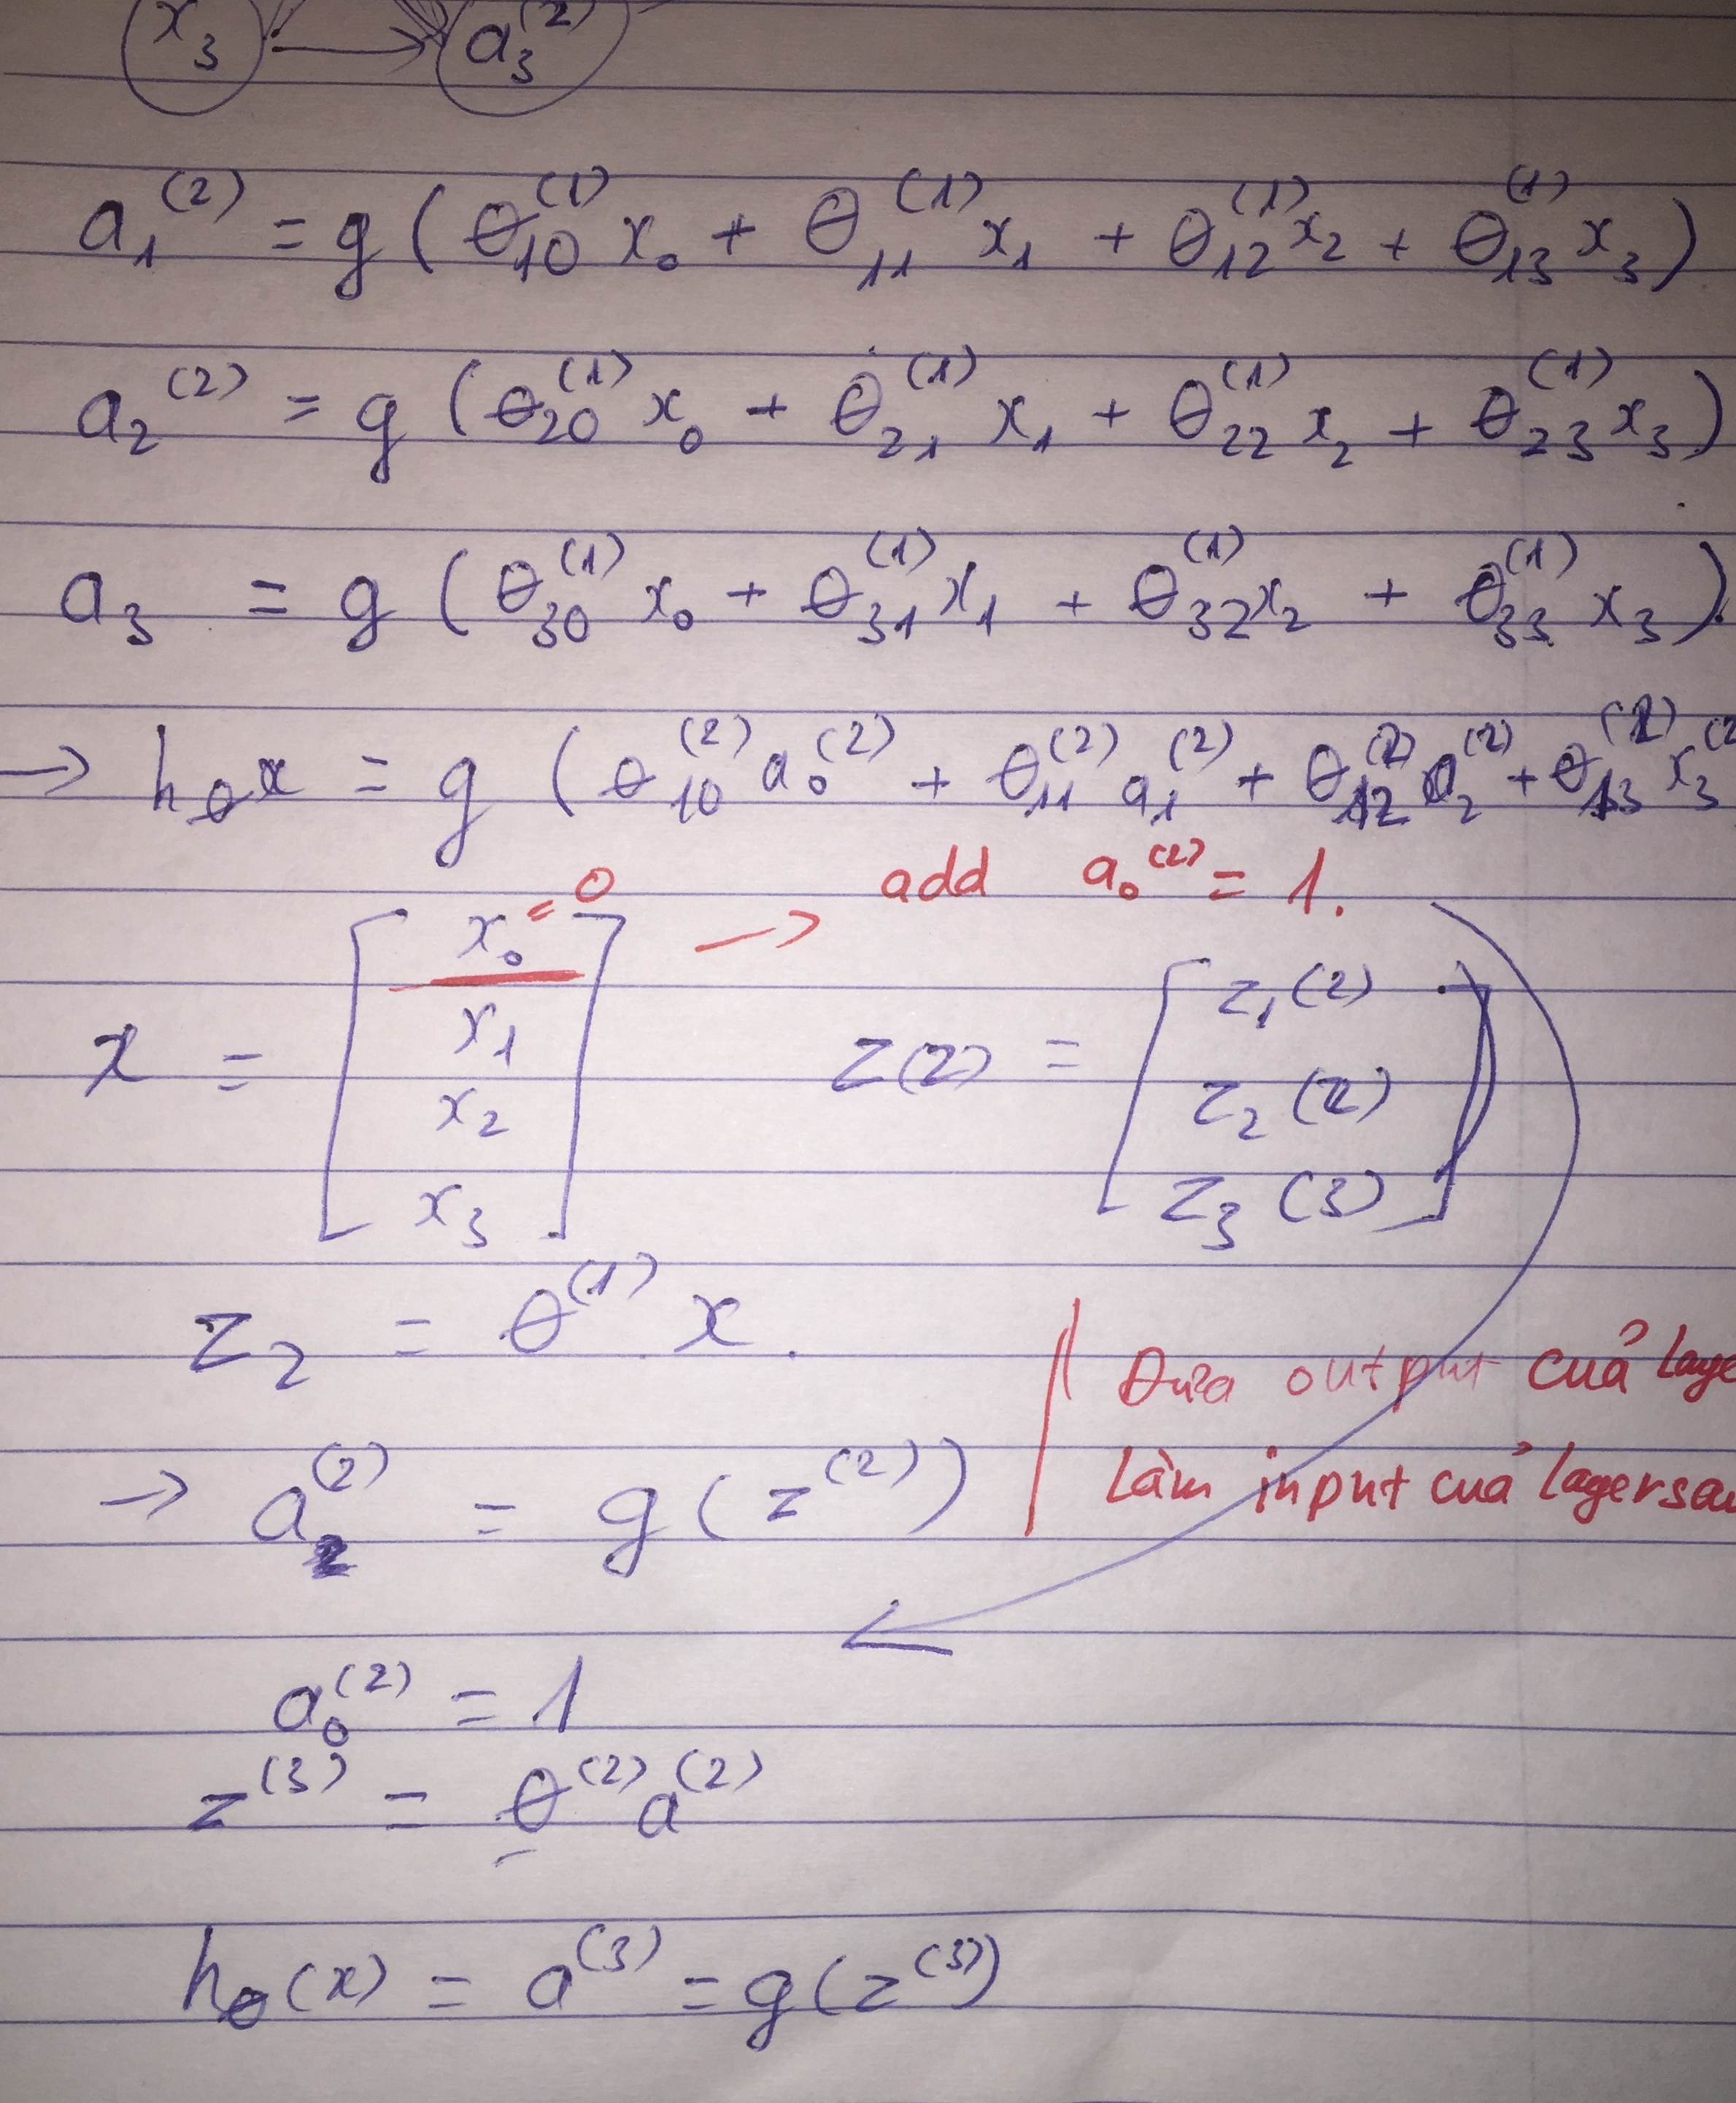 x₃ → a₃⁽²⁾
a₁⁽²⁾ = g ( θ₁₀⁽¹⁾ x₀ + θ₁₁⁽¹⁾ x₁ + θ₁₂⁽¹⁾ x₂ + θ₁₃⁽¹⁾ x₃ )
a₂⁽²⁾ = g ( θ₂₀⁽¹⁾ x₀ + θ₂₁⁽¹⁾ x₁ + θ₂₂⁽¹⁾ x₂ + θ₂₃⁽¹⁾ x₃ )
a₃ = g ( θ₃₀⁽¹⁾ x₀ + θ₃₁⁽¹⁾ x₁ + θ₃₂⁽¹⁾ x₂ + θ₃₃⁽¹⁾ x₃ ).
→ hθx = g ( θ₁₀⁽²⁾ a₀⁽²⁾ + θ₁₁⁽²⁾ a₁⁽²⁾ + θ₁₂⁽²⁾ a₂⁽²⁾ + θ₁₃⁽²⁾ x₃⁽²
→ add a₀⁽²⁾ = 1.
x = [ x₀ = 0
x₁
x₂
x₃ ]
z(2) = [ z₁(2)
z₂(2)
z₃(3) ]
z₂ = θ⁽¹⁾ . x .
Đưa output cuả laye
làm input cuả layer sau
→ a₂⁽²⁾ = g ( z⁽²⁾ )
a₀⁽²⁾ = 1
z⁽³⁾ = θ⁽²⁾ a⁽²⁾
hθ(x) = a⁽³⁾ = g(z⁽³⁾)